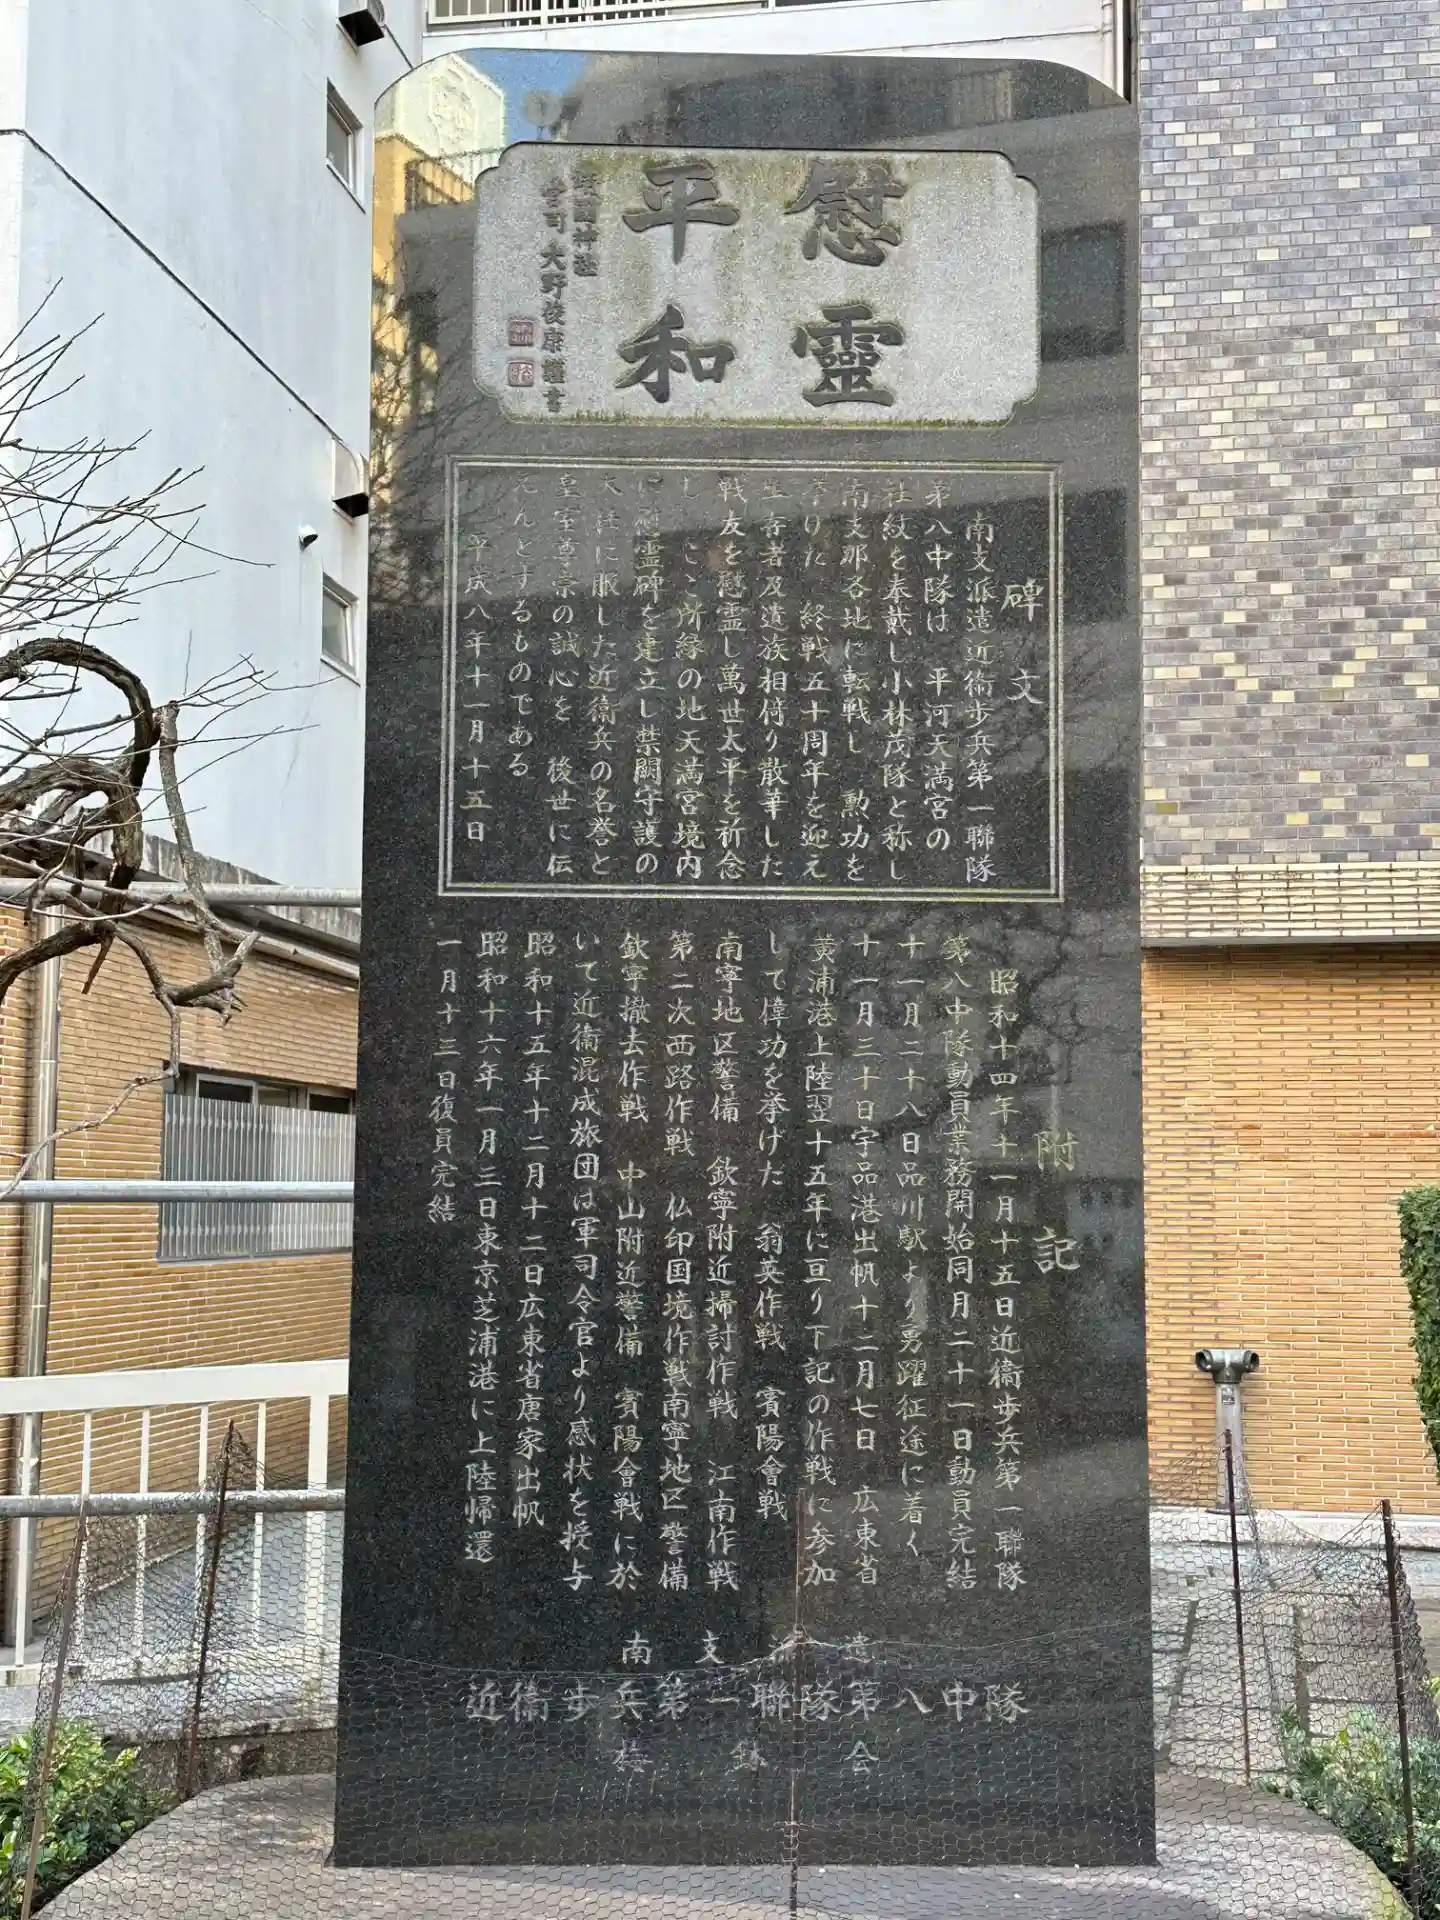 慰靈
平和
靖國神社
宮司 大野俊康謹書
碑文
南支派遣近衞歩兵第一聯隊
第八中隊は 平河天満宮の
社紋を奉戴し小林茂隊と称し
南支那各地に転戦し 勲功を
挙げた 終戦五十周年を迎え
生存者及遺族相倚り散華した
戦友を慰霊し萬世太平を祈念
し ここ所縁の地天満宮境内
に慰霊碑を建立し禁闕守護の
大任に服した近衞兵の名誉と
皇室尊崇の誠心を 後世に伝
えんとするものである
平成八年十一月十五日
附記
昭和十四年十一月十五日近衞歩兵第一聯隊
第八中隊動員業務開始同月二十一日動員完結
十一月二十八日品川駅より勇躍征途に着く
十一月三十日宇品港出帆十二月七日 広東省
黄浦港上陸翌十五年に亘り下記の作戦に参加
して偉功を挙げた 翁英作戦 賓陽會戦
南寧地区警備 欽寧附近掃討作戦 江南作戦
第二次西路作戦 仏印国境作戦南寧地区警備
欽寧撤去作戦 中山附近警備 賓陽會戦に於
いて近衞混成旅団は軍司令官より感状を授与
昭和十五年十二月十二日広東省唐家出帆
昭和十六年一月三日東京芝浦港に上陸帰還
一月十三日復員完結
南支派遣
近衞歩兵第一聯隊第八中隊
会